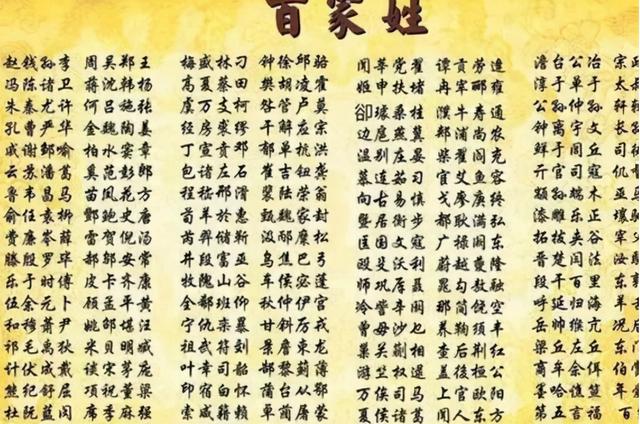 百家姓
赵钱孙李 周吴郑王 梅盛林刁 钟徐邱骆 闻莘党翟 谭贡劳逄 澹台公冶 宗
冯陈褚卫 蒋沈韩杨 高夏蔡田 樊胡凌霍 姬申扶堵 冉宰郦雍 淳于单于 太
朱秦尤许 何吕施张 虞万支柯 昝管卢莫 郤璩桑桂 濮牛寿通 公孙仲孙 轩
孔曹严华 金魏陶姜 经房裘缪 干解应宗 边扈燕冀 郏浦尚农 钟离宇文 长
戚谢邹喻 柏水窦章 丁宣贲邓 郁单杭洪 温别庄晏 柴瞿阎充 鲜于司寇 司
云苏潘葛 奚范彭郎 包诸左石 崔吉钮龚 慕连茹习 宦艾鱼容 亓官 仉
鲁韦昌马 苗凤花方 程嵇邢滑 裴陆荣翁 向古易慎 戈廖庾终 颛孙端木 巫
俞任袁柳 酆鲍史唐 荀羊於惠 甄魏家封 暨居衡步 都耿满弘 漆雕乐正 壤
费廉岑薛 雷贺倪汤 芮羿储靳 汲邴糜松 匡国文寇 广禄阙东 拓跋夹谷
滕殷罗毕 郝邬安常 井段富巫 乌焦巴弓 殳沃利 蔚越夔隆 晋楚闫法
乐于时傅 皮卡齐康 牧隗山谷 车侯宓蓬 师巩厍聂 晁勾敖融 段干百里
伍余元卜 顾孟平黄 全郗班仰 秋仲伊宫 冷訾辛阚 那简饶空 呼延归海 东
和穆萧尹 姚邵堪汪 宁仇栾暴 甘斜厉戎 曾毋沙乜 养鞠须丰 岳帅缑亢 况
祁毛禹狄 米贝明臧 祖武符刘 景詹束龙 巢关蒯相 查后荆红 梁丘左丘 东门
计伏成戴 谈宋茅庞 叶幸司韶 郜黎蓟薄 游竺权逯 盖益桓公 商牟佘佴 伯
熊纪舒屈 项祝董梁 印宿白怀 印台从鄂 万俟司马 上官欧阳 墨哈谯笪
杜阮蓝闵 席季麻强 索咸籍赖 卓蔺屠蒙 夏侯诸葛 闻人东方 第五言福